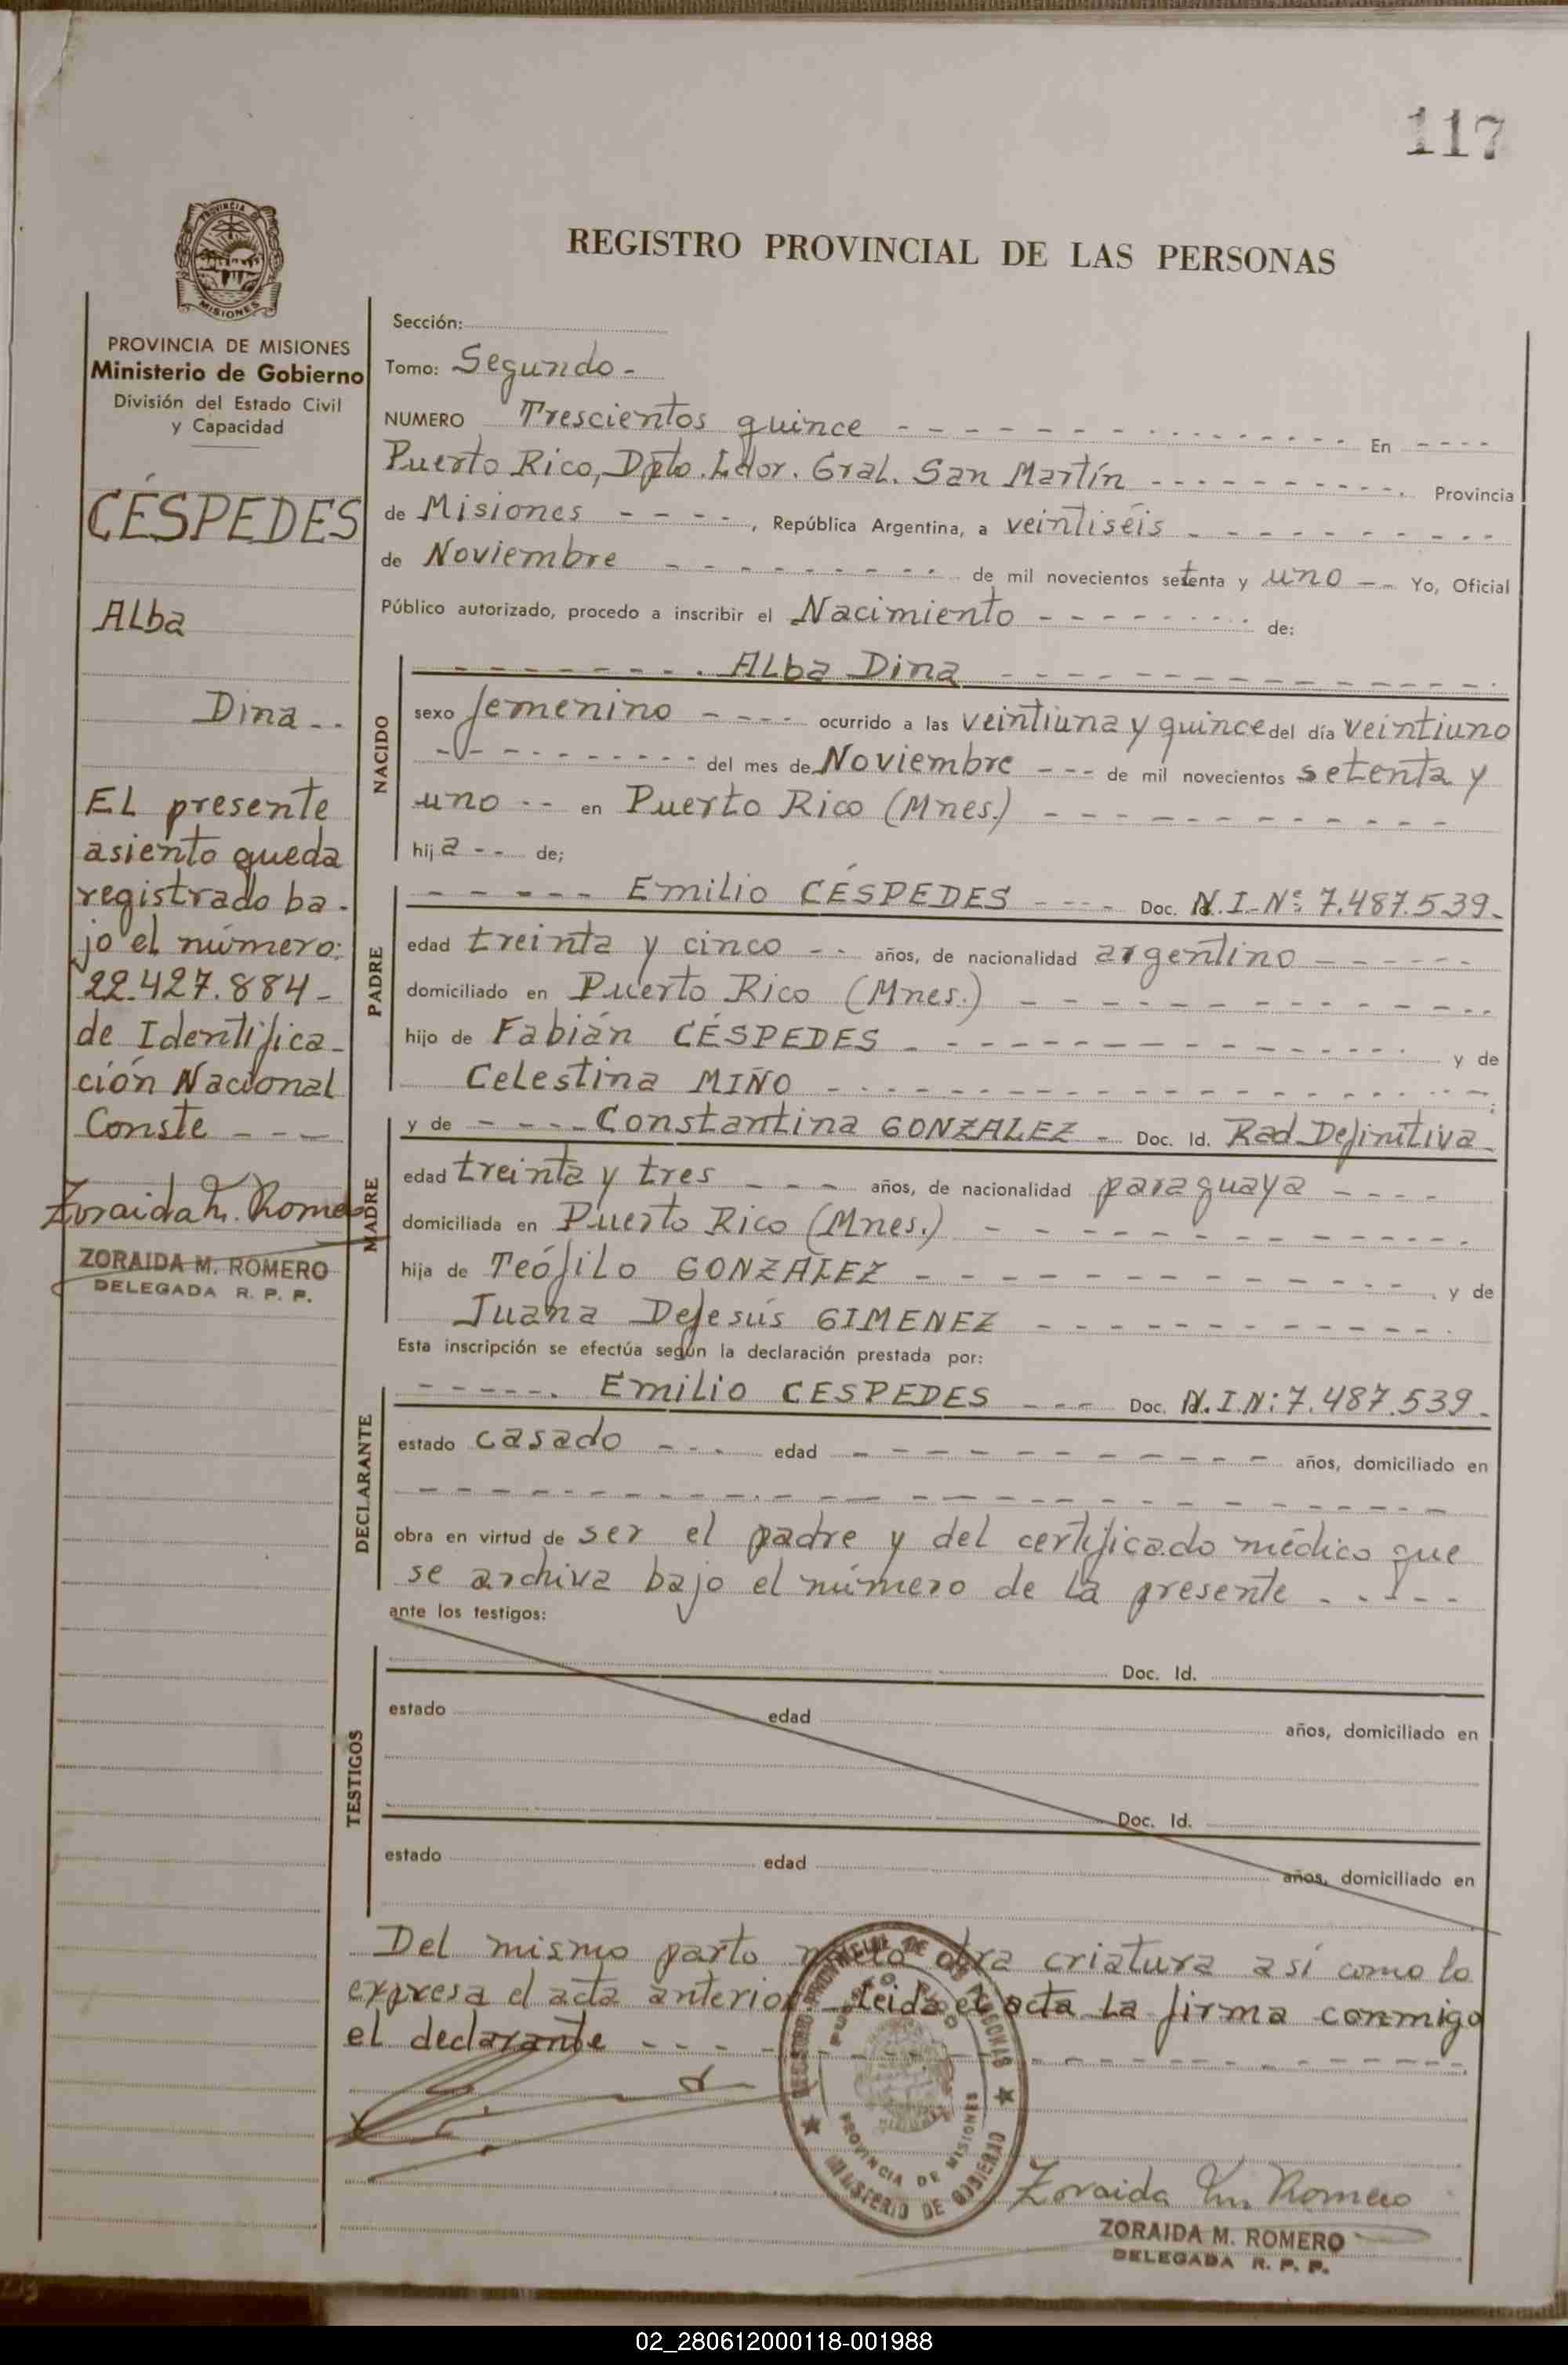 117
PROVINCIA DE
MISIONES
REGISTRO PROVINCIAL DE LAS PERSONAS
PROVINCIA DE MISIONES
Ministerio de Gobierno
División del Estado Civil
y Capacidad
CÉSPEDES
Alba
Dina --
El presente
asiento queda
registrado ba-
jo el número:
22.427.884-
de Identifica-
ción Nacional
Conste ---
Zoraida M. Romero
ZORAIDA M. ROMERO
DELEGADA R. P. P.
Sección:
Tomo: Segundo-
NUMERO Trescientos quince --- En ----
Puerto Rico, Dpto. Ldor. Gral. San Martín --- Provincia
de Misiones ----, República Argentina, a veintiséis ---
de Noviembre --- de mil novecientos setenta y uno -- Yo, Oficial
Público autorizado, procedo a inscribir el Nacimiento --- de:
NACIDO
--- Alba Dina ---
sexo femenino ---- ocurrido a las veintiuna y quince del día veintiuno
--- del mes de Noviembre --- de mil novecientos setenta y
uno -- en Puerto Rico (Mnes.) ---
hija -- de;
PADRE
----- Emilio CÉSPEDES ---- Doc. N.I.Nº: 7.487.539-
edad treinta y cinco -- años, de nacionalidad argentino ------
domiciliado en Puerto Rico (Mnes.) ---
hijo de Fabián CÉSPEDES --- y de
Celestina MIÑO --- ;
MADRE
y de ---- Constantina GONZALEZ - Doc. Id. Rad. Definitiva-
edad treinta y tres --- años, de nacionalidad paraguaya ----
domiciliada en Puerto Rico (Mnes.) ---
hija de Teófilo GONZALEZ --- , y de
Juana DeJesús GIMENEZ ---
Esta inscripción se efectúa según la declaración prestada por:
DECLARANTE
------ Emilio CESPEDES --- Doc. N.I.N: 7.487.539-
estado casado ---- edad --- años, domiciliado en
---
obra en virtud de ser el padre y del certificado médico que
se archiva bajo el número de la presente -----
ante los testigos:
TESTIGOS
Doc. Id.
estado edad años, domiciliado en
Doc. Id.
estado edad años, domiciliado en
Del mismo parto nació otra criatura así como lo
expresa el acta anterior.- Leída el acta la firma conmigo
el declarante ---
REGISTRO PROVINCIAL DE LAS PERSONAS
PUERTO RICO
PROVINCIA DE MISIONES
MINISTERIO DE GOBIERNO
Zoraida M. Romero
ZORAIDA M. ROMERO
DELEGADA R. P. P.
02_280612000118-001988